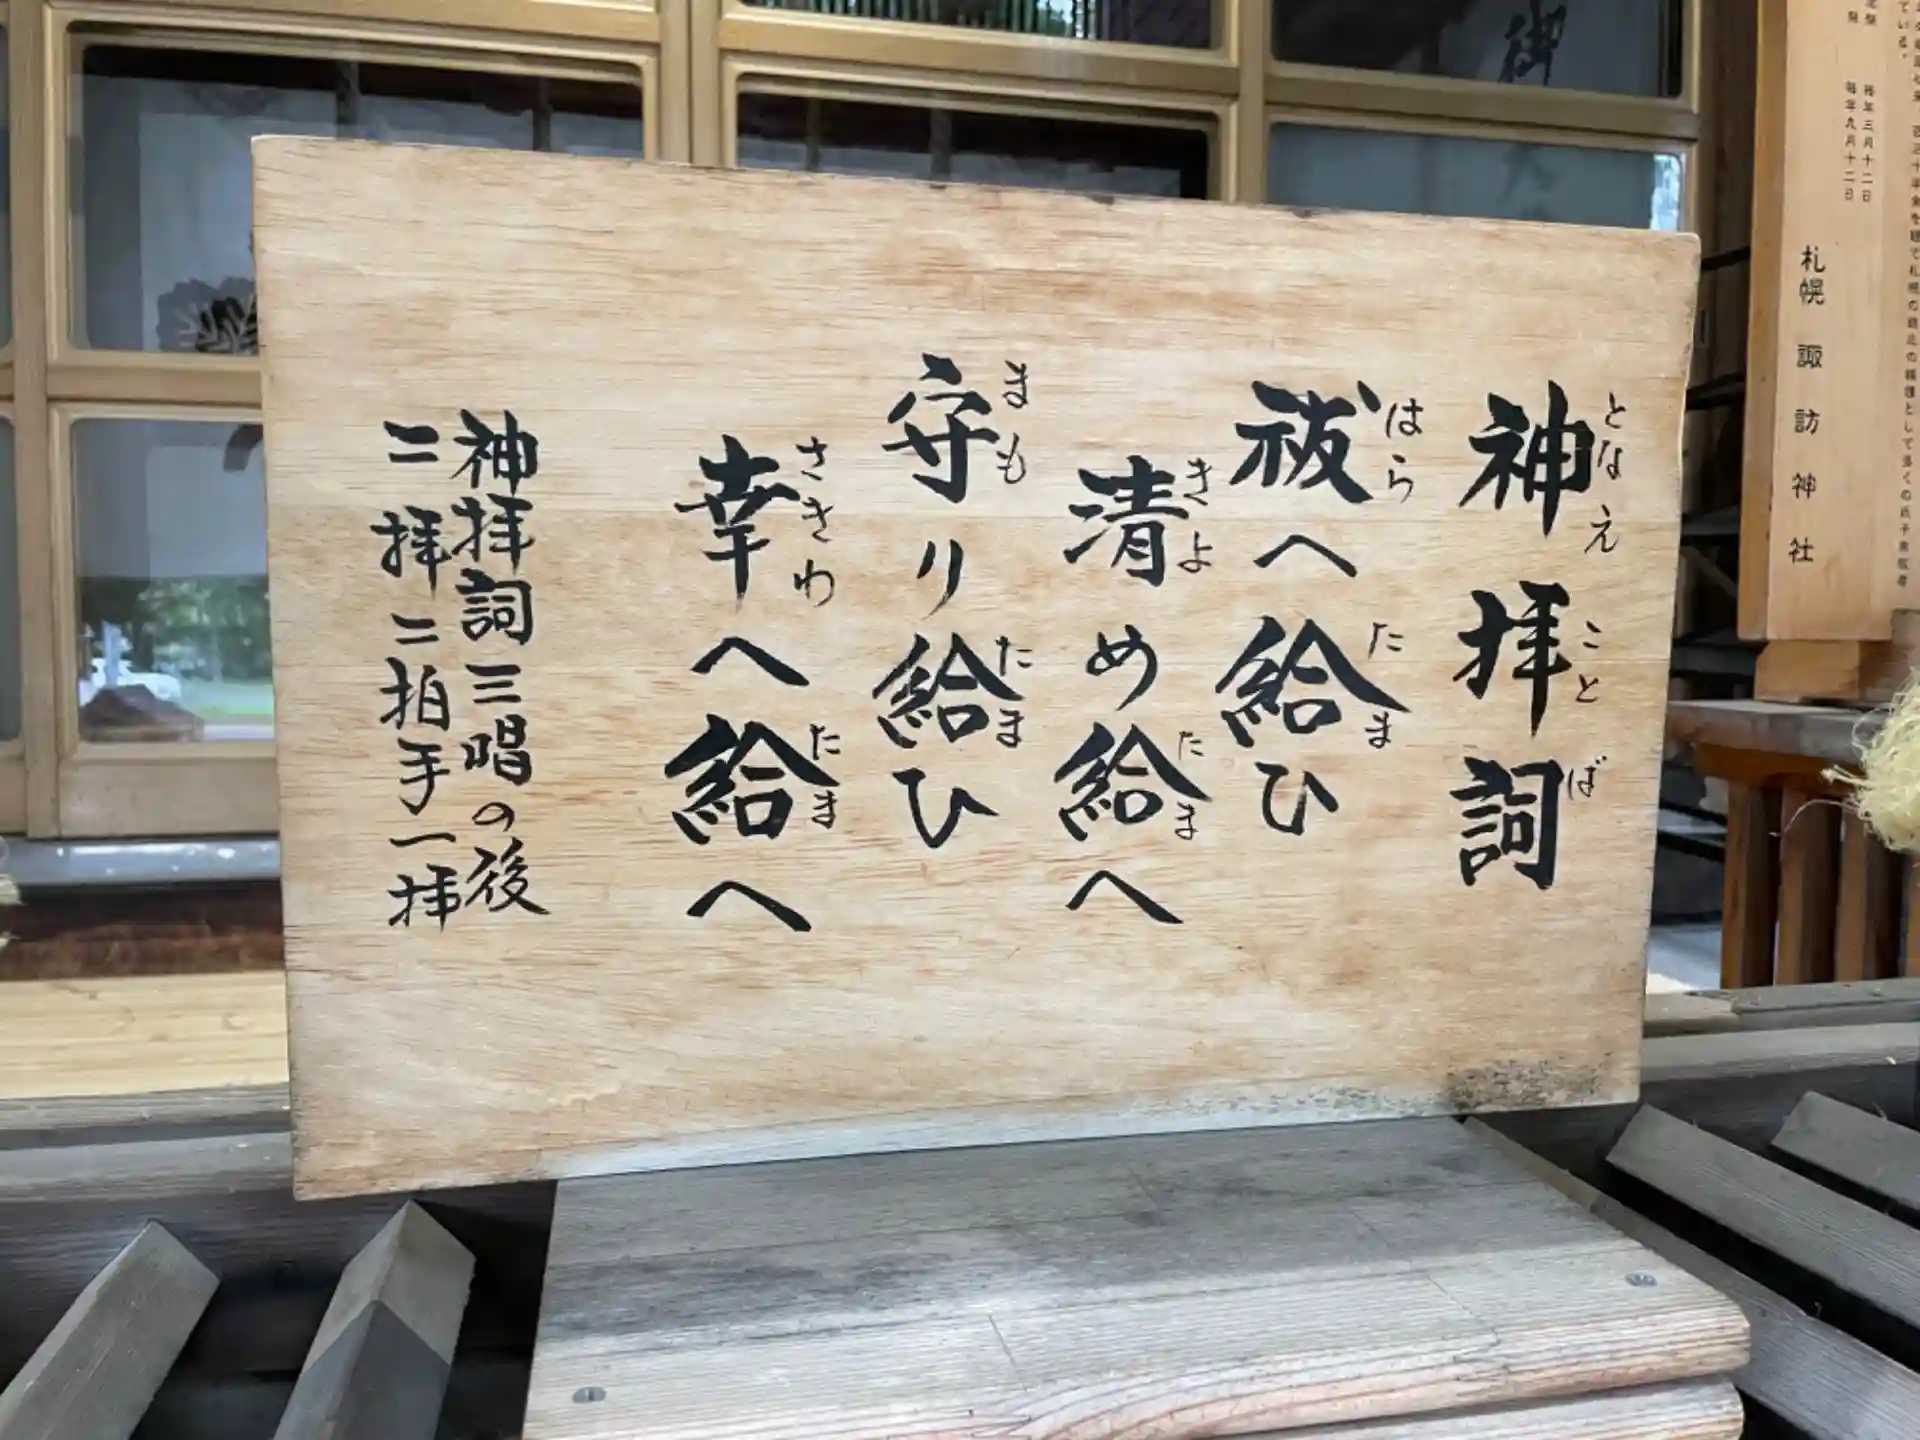 神拝詞
となえことば
祓へ給ひ
はら たま
清め給へ
きよ たま
守り給ひ
まも たま
幸へ給へ
さきわ たま
神拝詞三唱の後
二拝二拍手一拝
毎年三月十二日
毎年九月十二日
札幌諏訪神社
御